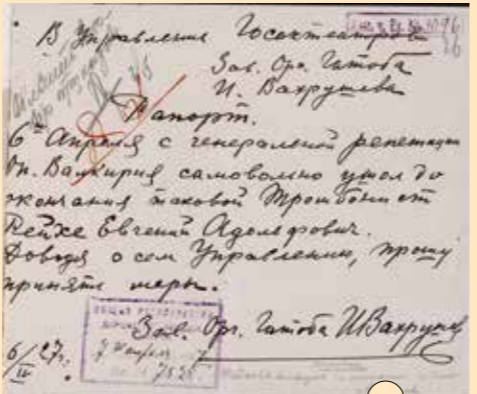 В Управление Госактеатров
Зав. Орк. Гатоба
И. Вахрушева
Рапорт.
6го Апреля с генеральной репетиции
оп. Валкирия самовольно ушол до
окончания таковой Тромбонист
Рейхе Евгений Адольфович.
Доводя о сем Управлению, прошу
принять меры.
Зав. Орк. Гатоба ИВахрушев
6/IV 27г.
7 апреля
7525